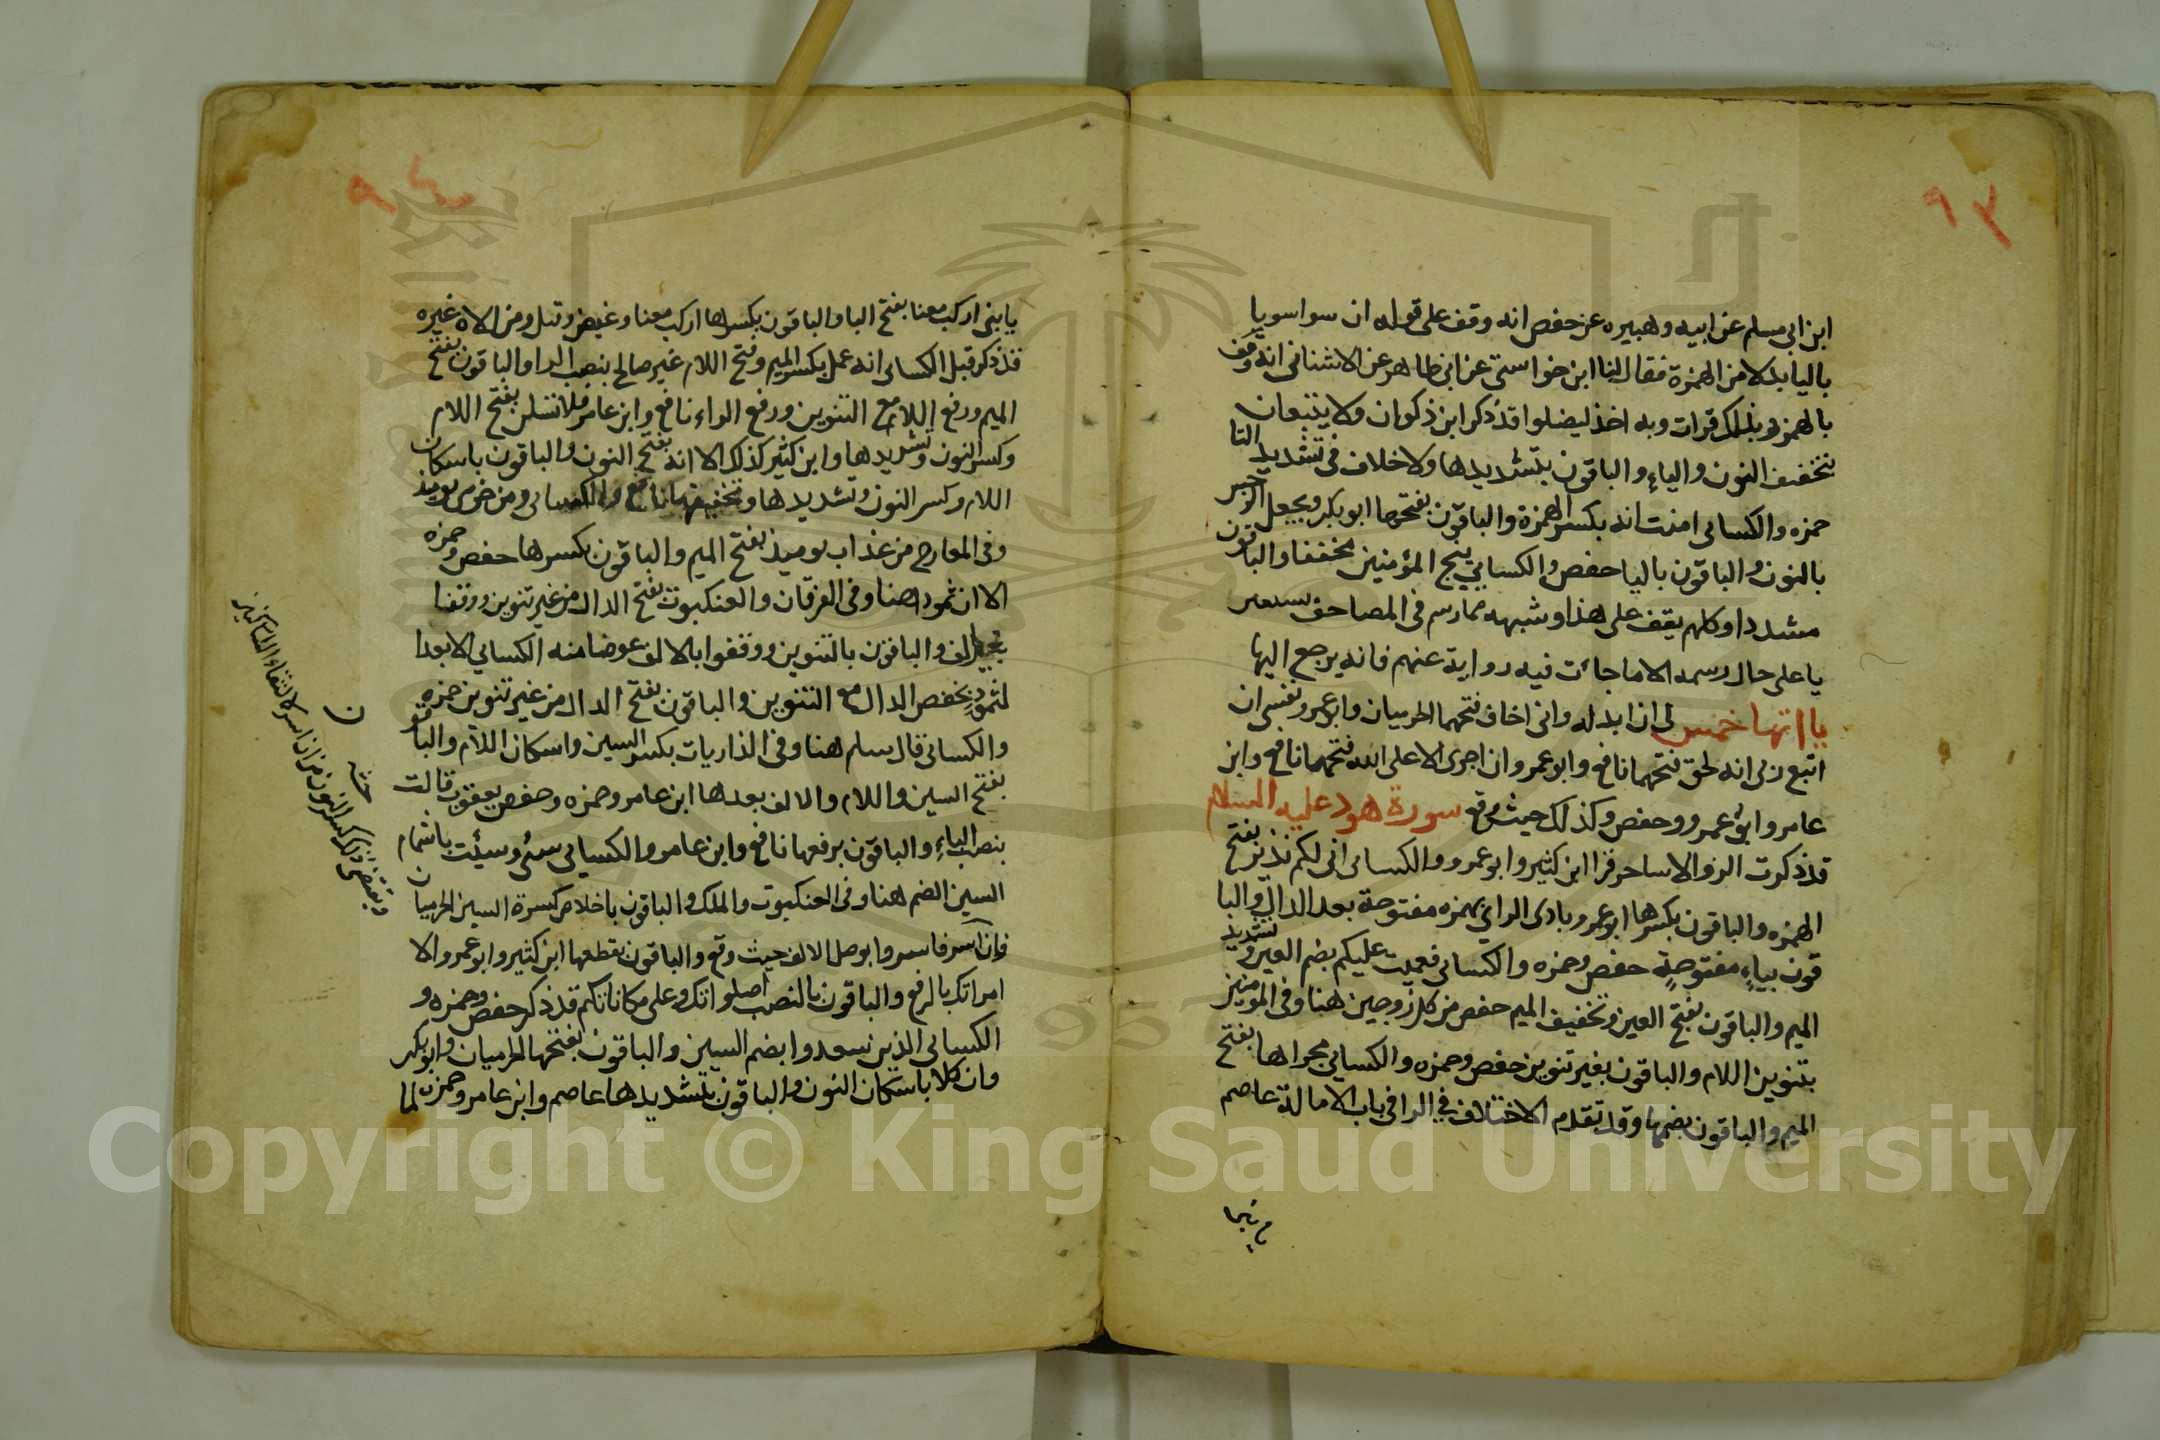 ٩٣
ابن ابي مسلم عن ابيه وهبيره عن حفص انه وقف على قوله ان سوا سويا
باليا بدلا من الهمزة فقال لنا ابن خواستى عن ابى طاهر عن الاشنانى انه وقف
بالهمز وبذلك قرات وبه اخذ ليضلوا قد ذكر ابن ذكوان ولا يتبعان
بتخفيف النون والياء والباقون بتشديدها ولا خلاف فى تشديد التا
حمزه والكسائى امنت انه بكسر الهمزة والباقون بفتحها ابو بكر ويجعل الرجس
بالنون والباقون باليا حفص والكسايي ننج المؤمنين مخففا والباقون
مشددا وكلهم يقف على هذا وشبهه مما رسم فى المصاحف بغير
يا على حال رسمه الا ما جائت فيه رواية عنهم فانه يرجع اليها
يا اتها خمس لى ان ابدله وانى اخاف فتحهما الحرميان وابو عمرو نفسى ان
اتبع ربى انه لحق فتحهما نافع وابو عمرو ان اجرى الا على الله فتحهما نافع وابن
عامر وابو عمرو وحفص وكذلك حيث وقع سورة هود عليه السلام
قد ذكرت الر والا ساحر قرا ابن كثير وابو عمرو والكسائى انى لكم نذير بفتح
الهمزه والباقون بكسرها ابو عمرو بادى الراي بهمزه مفتوحة بعد الدال والبا
قون بياء مفتوحة حفص وحمزه والكسائى فعميت عليكم بضم العين وتشديد
الميم والباقون بفتح العين وتخفيف الميم حفص من كل زوجين هنا وفى المومنين
بتنوين اللام والباقون بغير تنوين حفص وحمزه والكسايي مجراها بفتح
الميم والباقون بضمها وقد تقدم الاختلاف في الرا فى باب الامالة عاصم
٩٤
يا بنى اركب معنا بفتح اليا والباقون بكسرها اركب معنا وغيض وقيل ومن الاه غيره
قد ذكر قبل الكسائى انه عمل بكسر الميم وفتح اللام غير صالح بنصب الرا والباقون بفتح
الميم ورفع اللام مع التنوين ورفع الراء نافع وابن عامر فلا تسئلن بفتح اللام
وكسر النون وتشديدها وابن كثير كذلك الا انه بفتح النون والباقون باسكان
اللام وكسر النون وتشديدها وتخفيفها نافع والكسائى ومن خزى يومئذ
وفى المعارج من عذاب يوميذ بفتح الميم والباقون بكسرها حفص وحمزه
الا ان ثمودا هنا وفى الفرقان والعنكبوت بفتح الدال من غير تنوين ووقفا
بغير الف والباقون بالتنوين ووقفوا بالالف عوضا منه الكسايي الا بعدا
لثمود بخفض الدال مع التنوين والباقون بفتح الدال من غير تنوين حمزه
والكسائى قال سلم هنا وفى الذاريات بكسر السين واسكان اللام والباقو
بفتح السين واللام والالف بعدها ابن عامر وحمزه وحفص يعقوب قالت
بنصب الباء والباقون برفعها نافع وابن عامر والكسايي سئ وسيئت باشمام
السين الضم هنا وفى العنكبوت والملك والباقون باخلاص كسرة السين الحرميان
فان اسر فاسر وا بوصل الالف حيث وقع والباقون بقطعها ابن كثير وابو عمرو الا
امراتك بالرفع والباقون بالنصب اصلواتك وعلى مكاناتكم قد ذكر حفص وحمزه و
الكسائى الذين سعدوا بضم السين والباقون بفتحها الحرميان وابو بكر
وان كلا باسكان النون والباقون بتشديدها عاصم وابن عامر وحمزه لما
Copyright © King Saud University